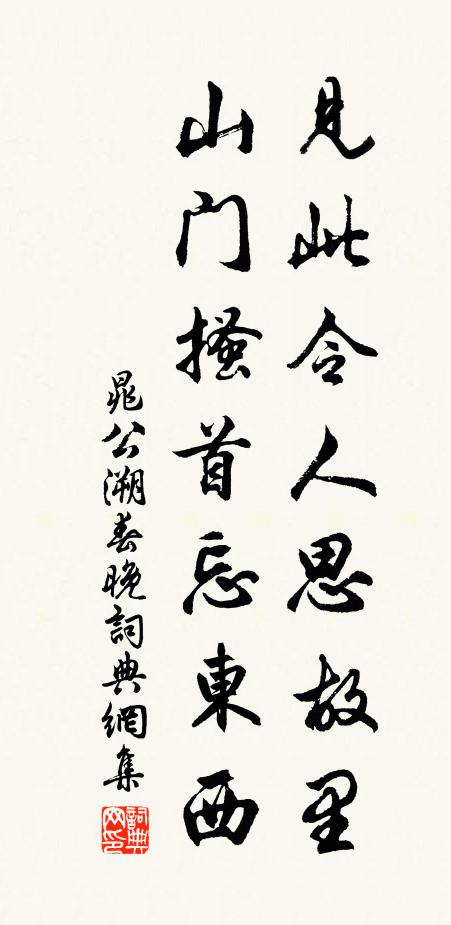 見此令人思故里
山门搔首忘東西
晁公溯春晚詞典網集
詞典网印